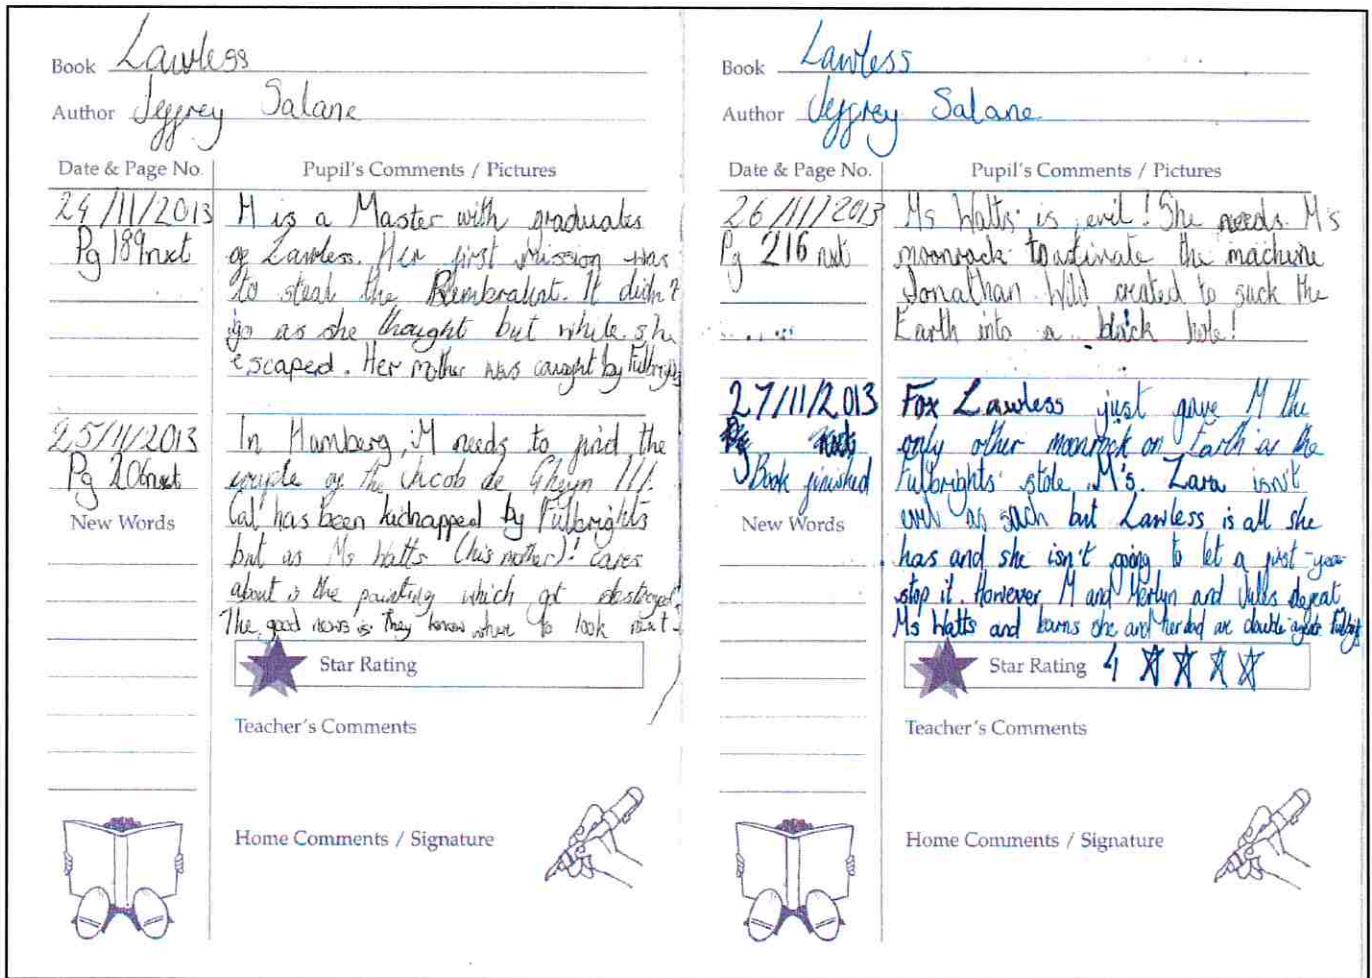 Book Lawless
Author Jeffrey Salane
Date & Page No.
Pupil's Comments / Pictures
24/11/2013
Pg 189 nxt
M is a Master with graduates
of Lawless. Her first mission was
to steal the Rembrandt. It didn't
go as she thought but while she
escaped. Her mother was caught by Fulbrights
25/11/2013
Pg 206 nxt
In Hamberg, M needs to find the
couple of the Jacob de Gheyn III.
Cal has been kidnapped by Fulbrights
but as Ms Watts (his mother)! cares
about is the painting which got destroyed.
The good news is they know where to look next.
New Words
Star Rating
Teacher's Comments
Home Comments / Signature
Book Lawless
Author Jeffrey Salane
Date & Page No.
Pupil's Comments / Pictures
26/11/2013
Pg 216 nxt
Ms Watts is evil! She needs M's
moonrock to activate the machine
Jonathan Wild created to suck the
Earth into a black hole!
27/11/2013
Book finished
Fox Lawless just gave M the
only other moonrock on Earth as the
Fulbrights stole M's. Zara isn't
evil as such but Lawless is all she
has and she isn't going to let a first-year
stop it. However M and Merlyn and Jules defeat
Ms Watts and learns she and her dad are double agents
New Words
Star Rating 4
Teacher's Comments
Home Comments / Signature